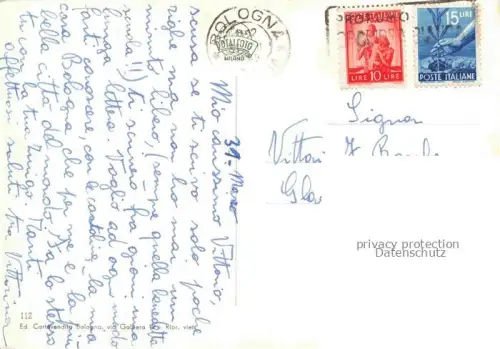 BOLOGNA
10 LIRE 10 LIRE
15 LIRE
POSTE ITALIANE
31-Marzo
Mio carissimo Vittorio,
scusa se ti scrivo solo poche
righe ma non ho mai un
minuto libero, (sempre quella benedetta
!!) ti scriverò fra giorni una
lunga lettera. Voglio ad ogni modo
farti conoscere, con le cartoline la mia
cara Bologna che per me è la più
bella città del mondo! Fa lo stesso
tu con la tua Tanti
affettuosi saluti tua Vittorina
Signor
Vittori
privacy protection
Datenschutz
112
Ed. Cartovendita Bologna, via Galliera Rip. viet.